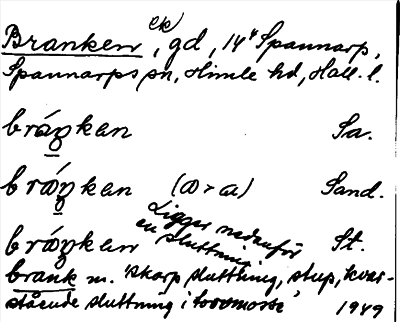 ek)
Branken, gd, 14 Spannarp,
Spannarps sn, Himle hd, Hall. l.
bráŋkan Sa.
bráŋkan (a > æ) Sand.
bráŋkan St.
Ligger nedanför
en sluttning
brank m. 'skarp sluttning, stup, kvar-
stående sluttning i torvmosse' 1949